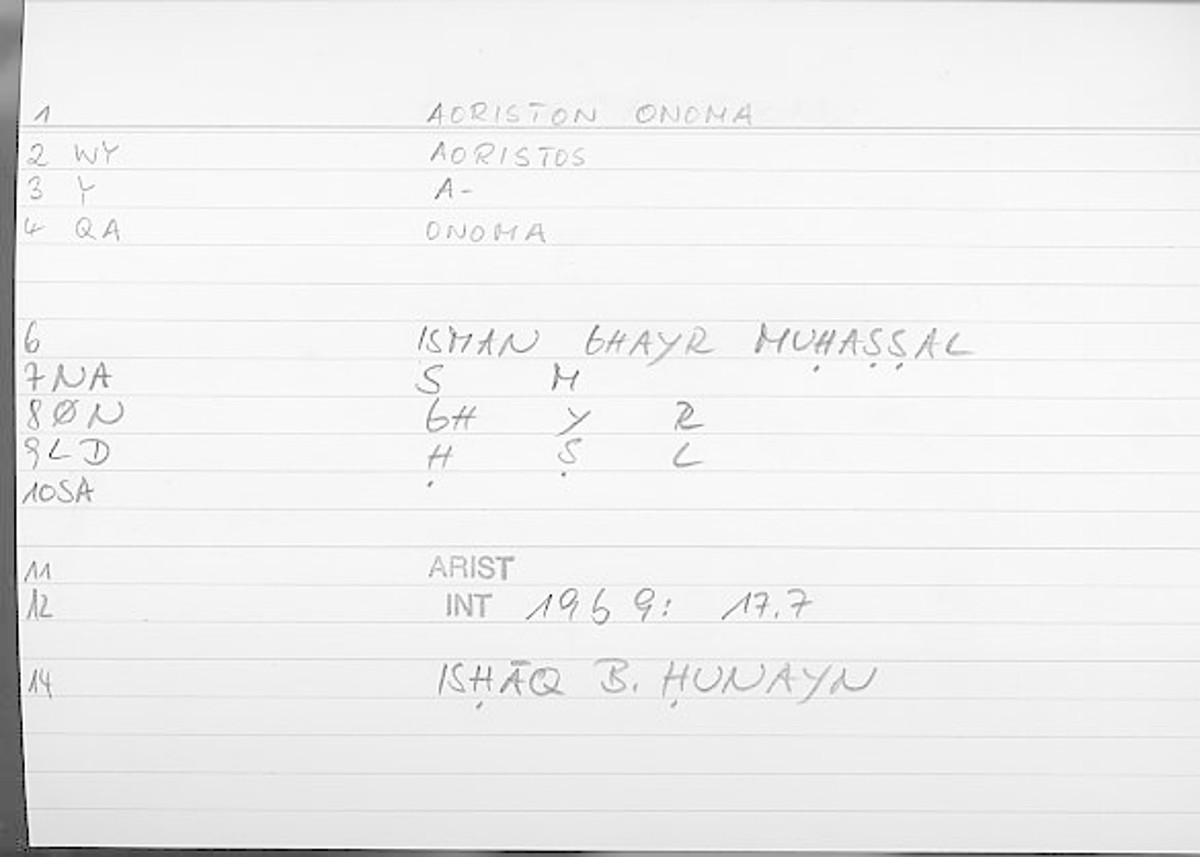 1 AORISTON ONOMA
2 WY AORISTOS
3 Y A-
4 QA ONOMA
6 ISMAN GHAYR MUḤAṢṢAL
7 NA S M
8 ØN GH Y R
9 LD Ḥ Ṣ L
10 SA
11 ARIST
12 INT 1969: 17.7
14 ISḤĀQ B. ḤUNAYN